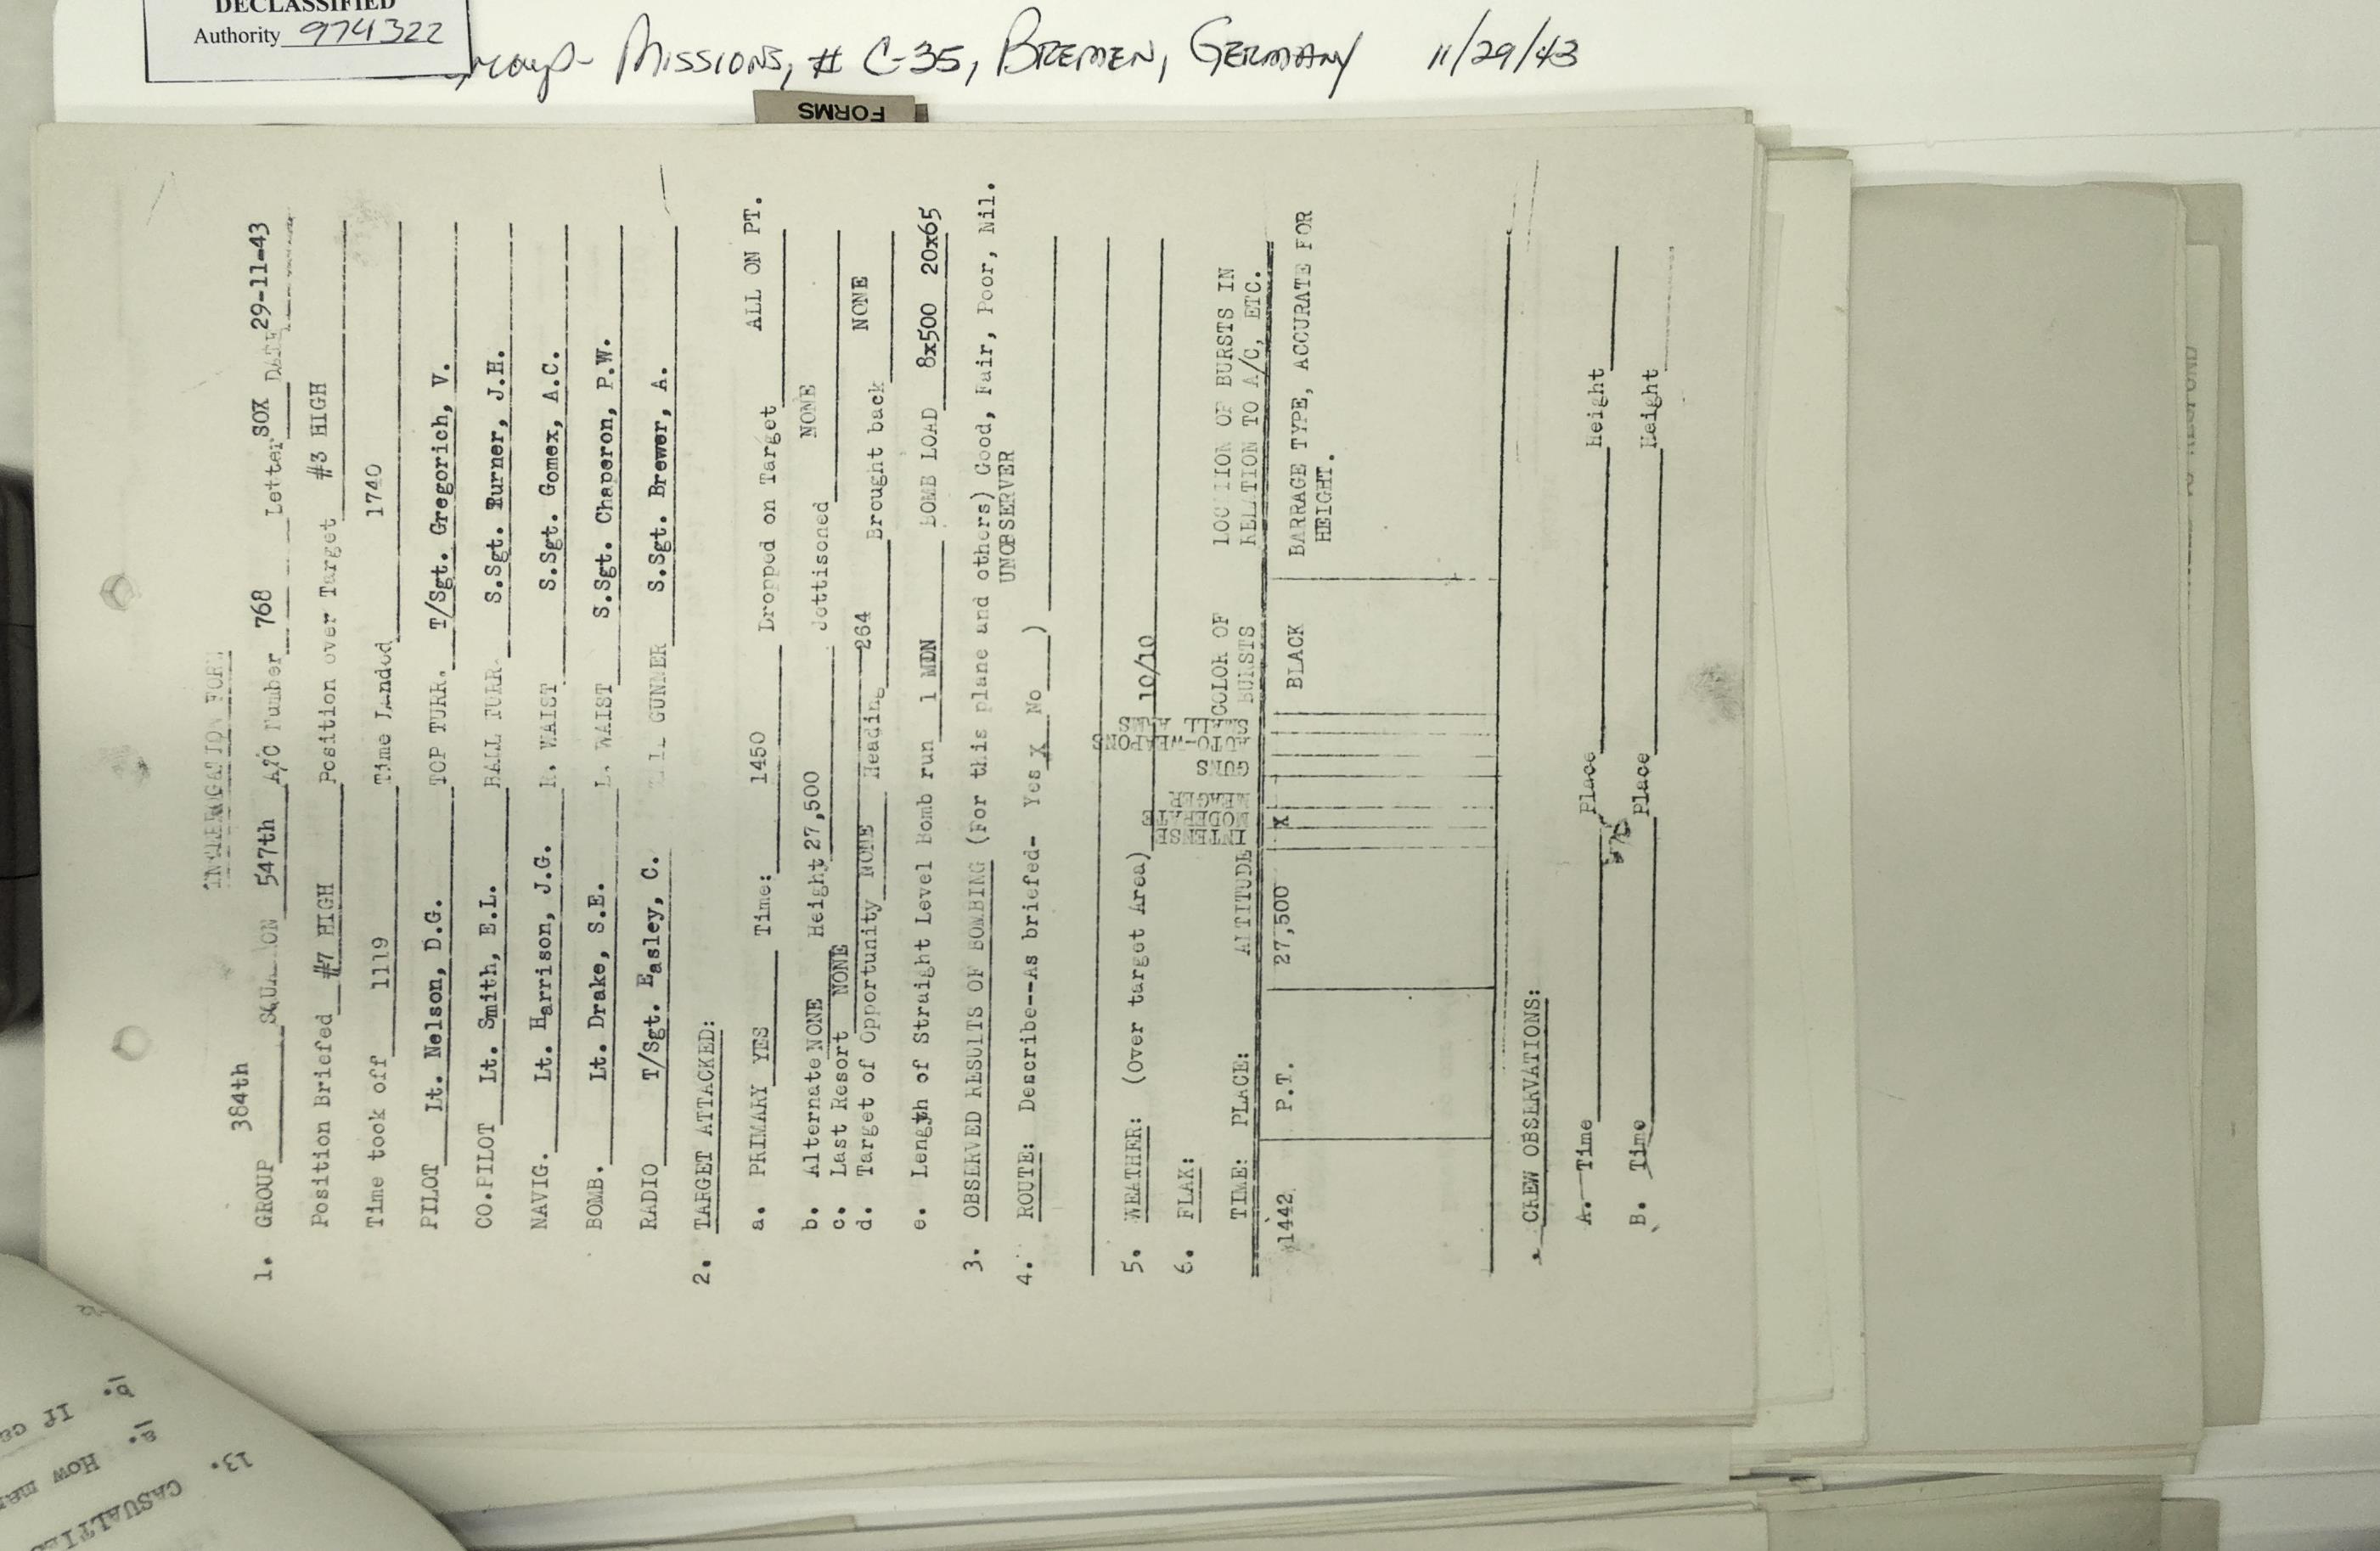 DECLASSIFIED
Authority 974322
Group- Missions, # C-35, Bremen, Germany 11/29/43
FORMS
INTERROGATION FORM
1. GROUP 384th SQUADRON 547th A/C Number 768 Letter SOX DATE 29-11-43
Position Briefed #7 HIGH Position over Target #3 HIGH
Time took off 1119 Time Landed 1740
PILOT Lt. Nelson, D.G. TOP TURR. T/Sgt. Gregorich, V.
CO.PILOT Lt. Smith, E.L. BALL TURR. S.Sgt. Turner, J.H.
NAVIG. Lt. Harrison, J.G. R. WAIST S.Sgt. Gomex, A.C.
BOMB. Lt. Drake, S.E. L. WAIST S.Sgt. Chaperon, P.W.
RADIO T/Sgt. Easley, C. GUNNER S.Sgt. Brewer, A.
2. TARGET ATTACKED:
a. PRIMARY YES Time: 1450 Dropped on Target ALL ON PT.
b. Alternate NONE Height 27,500 Jottisoned NONE
c. Last Resort NONE
d. Target of Opportunity NONE Heading 264 Brought back NONE
e. Length of Straight Level Bomb run 1 MDN BOMB LOAD 8x500 20x65
3. OBSERVED RESULTS OF BOMBING (For this plane and others) Good, Fair, Poor, Nil.
UNOBSERVER
4. ROUTE: Describe--As briefed- Yes X No )
5. WEATHER: (Over target Area) 10/10
6. FLAK:
TIME: PLACE: ALTITUDE INTENSE MODERATE MEAGER GUNS AUTO-WEAPONS COLOR OF BURSTS LOCATION OF BURSTS IN RELATION TO A/C, ETC.
1442 P.T. 27,500 X BLACK BARRAGE TYPE, ACCURATE FOR
HEIGHT.
CREW OBSERVATIONS:
A. Time Place Height
B. Time Place Height
13. CASUALTIE
a. How man
b. If ca